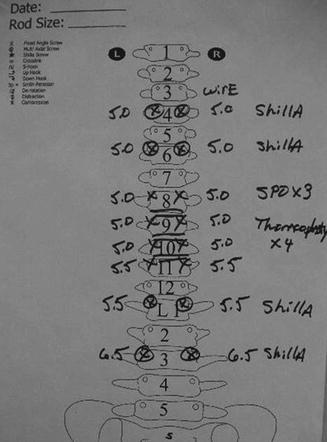 Date:
Rod Size:
Fixed Angle Screw
Multi Axial Screw
Shilla Screw
Crosslink
S-Hook
Up Hook
Down Hook
Smith Peterson
De-rotation
Distraction
Compression
L 1 R
2
3 wirE
5.0 4 5.0 ShillA
5
5.0 6 5.0 ShillA
7
5.0 8 5.0 SPO x 3
5.0 9 5.0
5.0 10 5.0 x 4
5.5 11 5.5
12
5.5 L 1 5.5 ShillA
2
6.5 3 6.5 ShillA
4
5
S